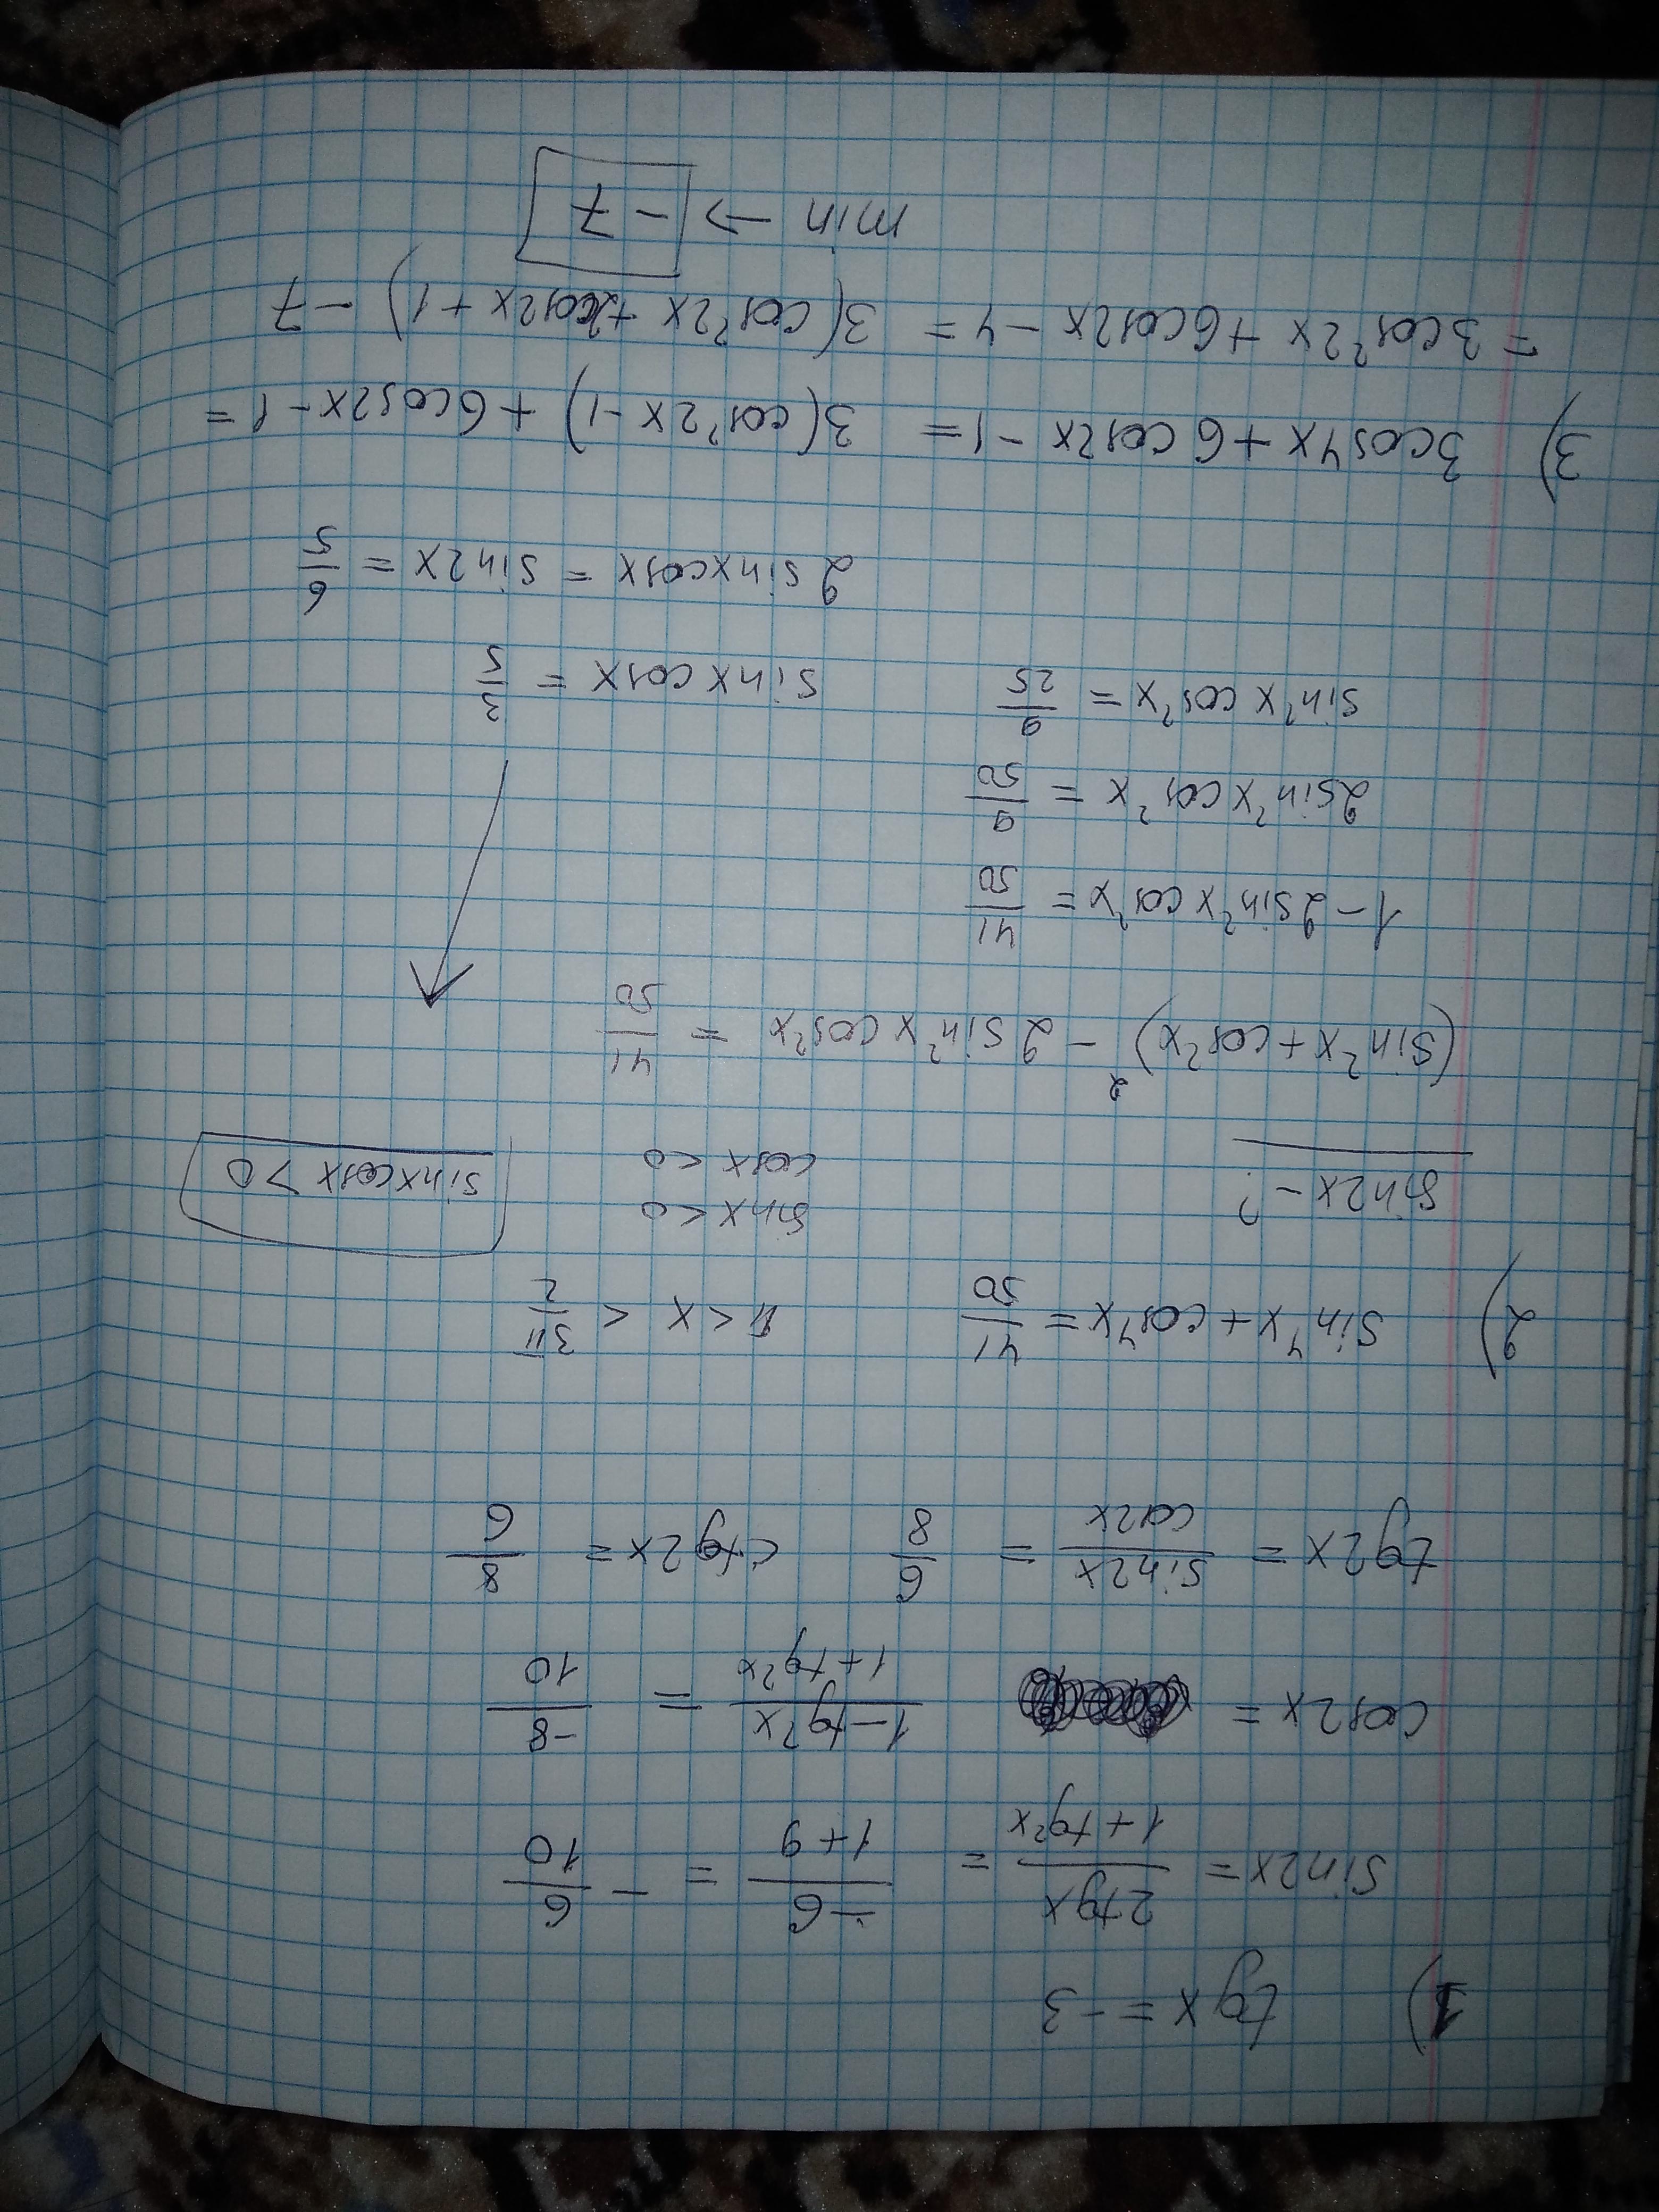 1) tg x = -3
sin2x = 2tgx / 1 + tg²x = -6 / 1+9 = - 6/10
cos2x = 1 - tg²x / 1 + tg²x = -8/10
tg2x = sin2x / cos2x = 6/8 ctg2x = 8/6
2) sin⁴x + cos⁴x = 41/50 π < x < 3π/2
sin2x - ? sinx < 0 cosx < 0 sinxcosx > 0
(sin²x + cos²x)² - 2sin²x cos²x = 41/50
1 - 2sin²x cos²x = 41/50
2sin²x cos²x = 9/50
sin²x cos²x = 9/25 sinx cosx = 3/5
2sinxcosx = sin2x = 6/5
3) 3cos4x + 6cos2x - 1 = 3(cos²2x - 1) + 6cos2x - 1 =
= 3cos²2x + 6cos2x - 4 = 3(cos²2x + 2cos2x + 1) - 7
min → -7